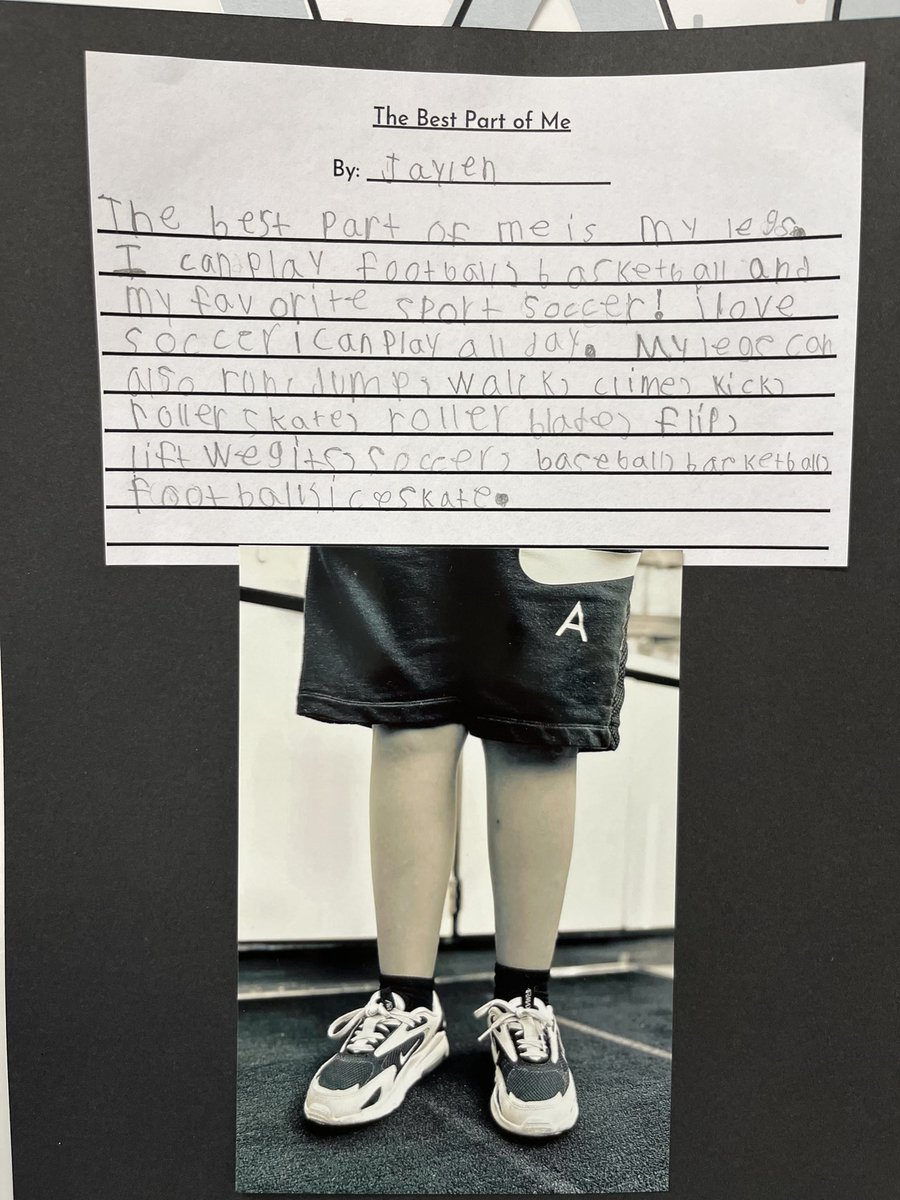 The Best Part of Me
By: Jaylen
The best part of me is my legs.
I can play football, basketball and
my favorite sport soccer! i love
soccer i can play all day. My legs can
also run, jump, walk, clime, kick,
roller skate, roller blade, flip,
lift wegits, soccer, baseball, basketball,
football, ice skate.
A